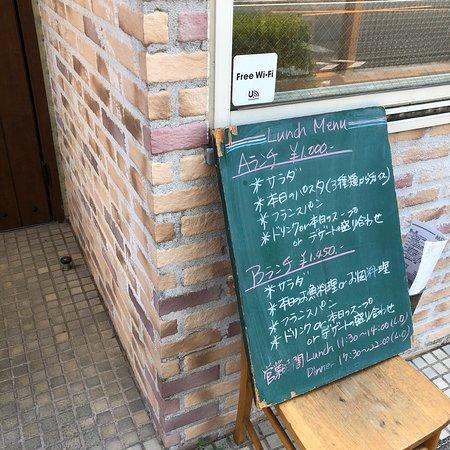 Free Wi-Fi
Lunch Menu
Aランチ ¥1,000-
＊サラダ
＊本日のパスタ(3種類からチョイス)
＊フランスパン
＊ドリンクor本日のスープ
or デザートの盛り合わせ
Bランチ ¥1,450-
＊サラダ
＊本日のお魚料理 or お肉料理
＊フランスパン
＊ドリンク or 本日のスープ
or デザートの盛り合わせ
営業時間 Lunch 11:30~14:00(L.O)
Dinner 17:30~22:00(L.O)